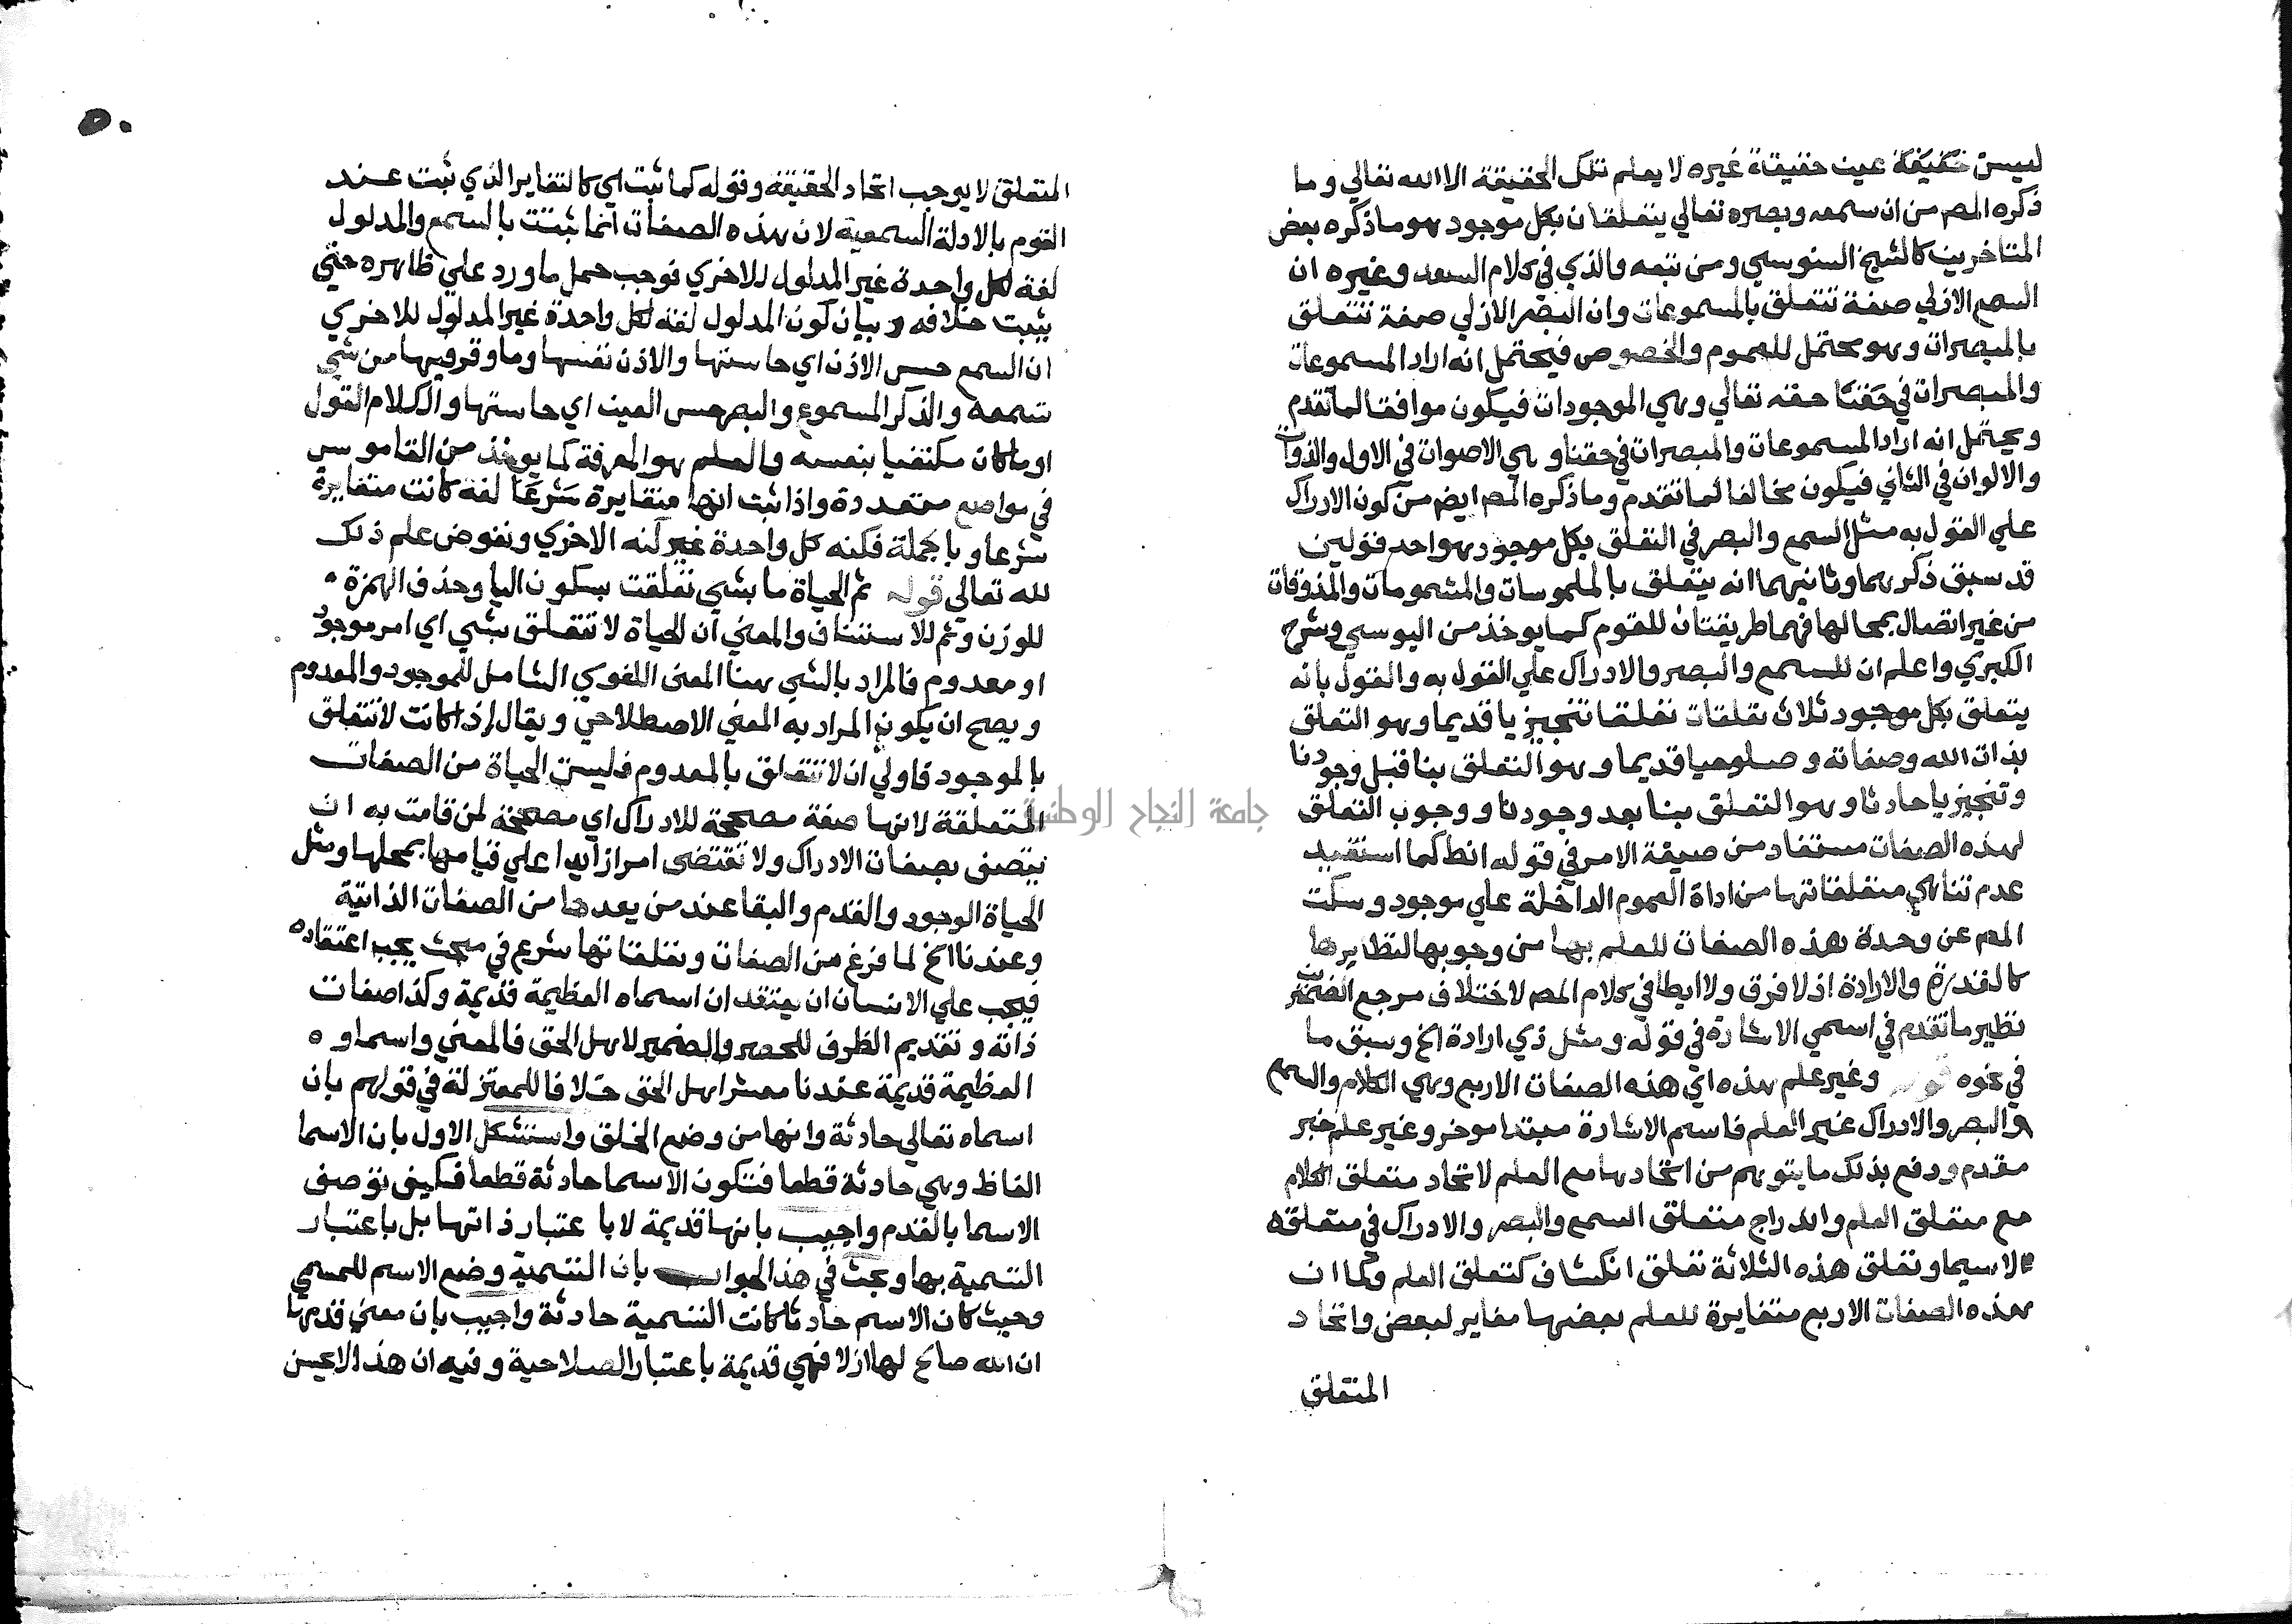 ليست حقيقة عين حقيقة غيره لا يعلم تلك الحقيقة الا الله تعالي وما
ذكره المص من ان سمعه وبصره تعالي يتعلقان بكل موجود هو ما ذكره بعض
المتاخرين كالشيخ السنوسي ومن تبعه والذي في كلام السعد وغيره ان
السمع الازلي صفة تتعلق بالمسموعات وان البصر الازلي صفة تتعلق
بالمبصرات وهو محتمل للعموم والخصوص فيحتمل انه اراد المسموعات
والمبصرات في حقنا حقه تعالي وهي الموجودات فيكون موافقا لما تقدم
ويحتمل انه اراد المسموعات والمبصرات في حقنا وهي الاصوات في الاول والذوات
والالوان في الثاني فيكون مخالفا لما تقدم وما ذكره المص ايض من كون الادراك
علي القول به مثل السمع والبصر في التعلق بكل موجود هو احد قولين
قد سبق ذكرهما وثانيهما انه يتعلق بالملموسات والمشمومات والمذوقات
من غير اتصال بمحالها فهما طريقتان للقوم كما يوخذ من اليوسي وشرح
الكبري واعلم ان للسمع والبصر والادراك علي القول به والقول بانه
يتعلق بكل موجود ثلاث تعلقات تعلقا تنجيزيا قديما وهو التعلق
بذات الله وصفاته وصلوحيا قديما وهو التعلق بنا قبل وجودنا
وتنجيزيا حادثا وهو التعلق بنا بعد وجودنا ووجوب التعلق
لهذه الصفات مستفاد من صيغة الامر في قوله انط كما استفيد
عدم تناهي متعلقاتها من اداة العموم الداخلة علي موجود وسكت
المص عن وحدة هذه الصفات للعلم بها من وجوبها لنظايرها
كالقدرة والارادة اذ لا فرق ولا ايطا في كلام المص لاختلاف مرجع الضميرين
نظير ما تقدم في اسمي الاشارة في قوله ومثل ذي ارادة الخ وسبق ما
في نحوه قوله وغير علم هذه اي هذه الصفات الاربع وهي الكلام والسمع
والبصر والادراك غير العلم فاسم الاشارة مبتدا موخر وغير علم خبر
مقدم ودفع بذلك ما يتوهم من اتحادها مع العلم لاتحاد متعلق الكلام
مع متعلق العلم واندراج متعلق السمع والبصر والادراك في متعلقه
لاسيما وتعلق هذه الثلاثة تعلق انكشاف كتعلق العلم وكما ان
هذه الصفات الاربع متغايرة للعلم بعضها مغاير لبعض واتحاد
المتعلق
٥٠
المتعلق لا يوجب اتحاد الحقيقة وقوله كما ثبت اي كالتغاير الذي ثبت عند
القوم بالادلة السمعية لان هذه الصفات انما ثبتت بالسمع والمدلول
لغة لكل واحدة غير المدلول للاخري فوجب حمل ما ورد علي ظاهره حتي
يثبت خلافه وبيان كون المدلول لغة لكل واحدة غير المدلول للاخري
ان السمع حس الاذن اي حاستها والاذن نفسها وما وقر فيها من شي
تسمعه والذكر المسموع والبصر حس العين اي حاستها والكلام القول
او ما كان مكتفيا بنفسه والعلم هو المعرفة كما يوخذ من القاموس
في مواضع متعددة واذا ثبت انها متغايرة لغة كانت متغايرة
شرعا وبالجملة فكنه كل واحدة غير كنه الاخري ونفوض علم ذلك
لله تعالي قوله ثم الحياة ما بشي تعلقت بسكون اليا وحذف الهمزة
للوزن وثم للاستئناف والمعني ان الحياة لا تتعلق بشي اي امر موجود
او معدوم فالمراد بالشي هنا المعنى اللغوي الشامل للموجود والمعدوم
ويصح ان يكون المراد به المعني الاصطلاحي ويقال اذا كانت لا تتعلق
بالموجود فاولي ان لا تتعلق بالمعدوم فليست الحياة من الصفات
المتعلقة لانها صفة مصححة للادراك اي مصححة لمن قامت به ان
يتصف بصفات الادراك ولا تقتضى امرا زايدا علي قيامها بمحلها ومثل
الحياة الوجود والقدم والبقا عند من يعدها من الصفات الذاتية
وعندنا الخ لما فرغ من الصفات وتعلقاتها شرع في مبحث يجب اعتقاده
فيجب علي الانسان ان يعتقد ان اسماه العظيمة قديمة وكذا صفات
ذاته وتقديم الظرف للحصر والضمير لاهل الحق فالمعني واسماوه
العظيمة قديمة عندنا معشر اهل الحق خلافا للمعتزلة في قولهم بان
اسماه تعالي حادثة وانها من وضع الخلق واستشكل الاول بان الاسما
الفاظ وهي حادثة قطعا فتكون الاسما حادثة قطعا فكيف توصف
الاسما بالقدم واجيب بانها قديمة لا باعتبار ذاتها بل باعتبار
التسمية بها وبحث في هذا الجواب بان التسمية وضع الاسم للمسمي
وحيث كان الاسم حادثا كانت التسمية حادثة واجيب بان معني قدمها
ان الله صالح لها ازلا فهي قديمة باعتبار الصلاحية وفيه ان هذا لا يحسن
جامعة النجاح الوطنية